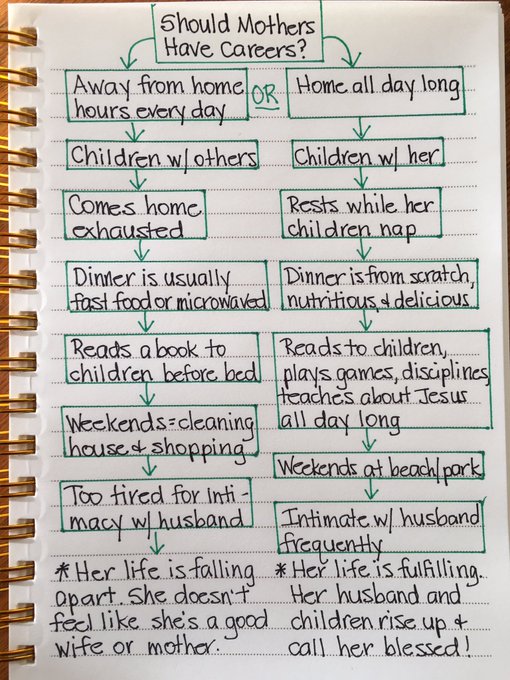 Should Mothers
Have Careers?
Away from home
hours every day
OR
Home all day long
Children w/ others
Children w/ her
Comes home
exhausted
Rests while her
children nap
Dinner is usually
fast food or microwaved
Dinner is from scratch,
nutritious, & delicious
Reads a book to
children before bed
Reads to children,
plays games, disciplines,
teaches about Jesus
all day long
Weekends = cleaning
house & shopping
Weekends at beach/park
Too tired for inti-
macy w/ husband
Intimate w/ husband
frequently
* Her life is falling
apart. She doesn't
feel like she's a good
wife or mother.
* Her life is fulfilling.
Her husband and
children rise up &
call her blessed!